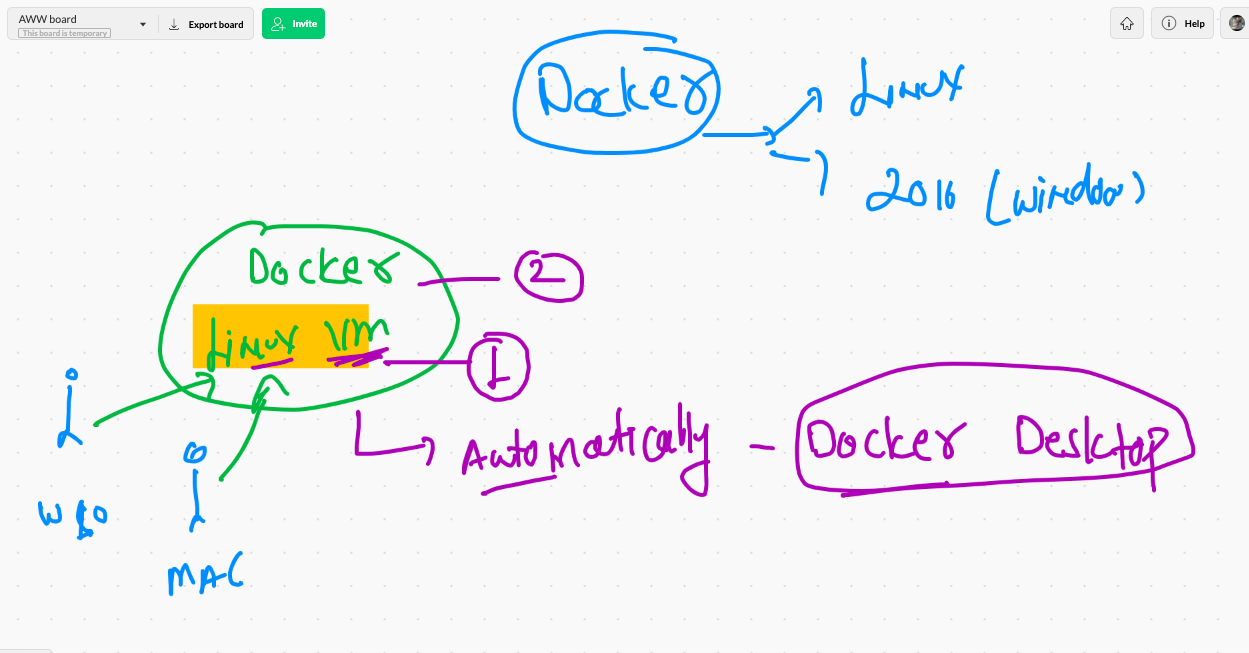 AWW board
This board is temporary
Export board
Invite
Help
Docker
Linux
2016 (window)
Docker
2
Linux VM
1
Automatically - Docker Desktop
W10
MAC